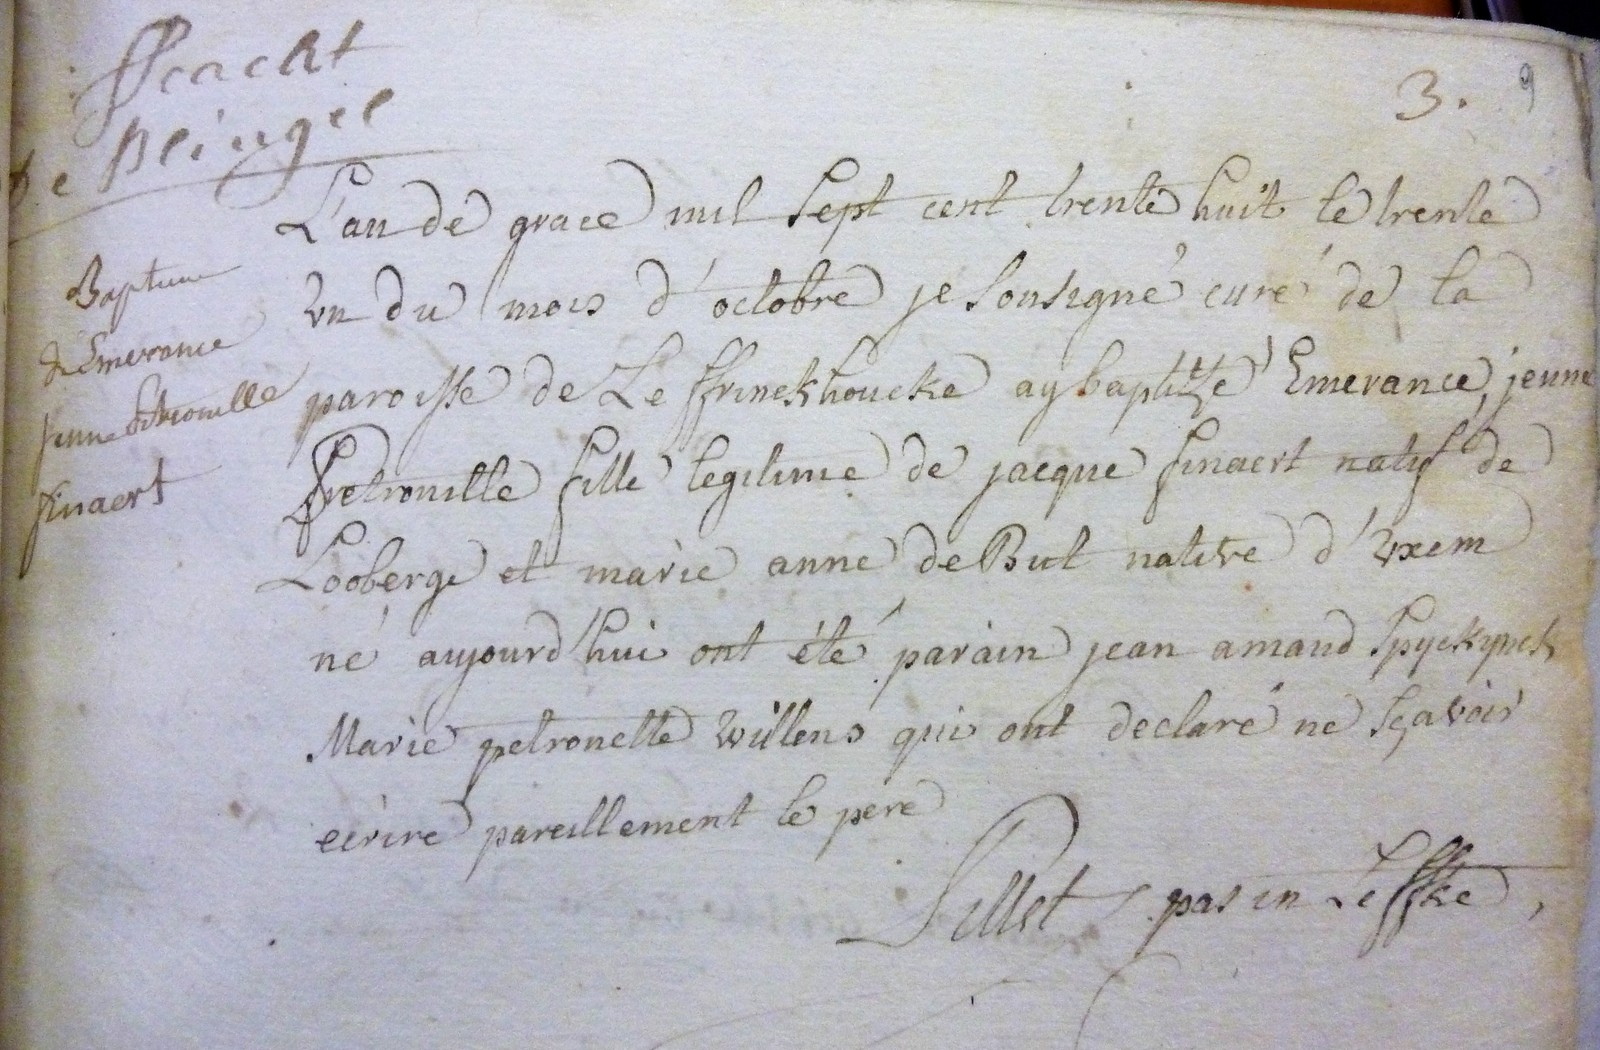 3. 9
De Blingel
L'an de grace mil sept cent trente huit le trente
vn du mois d'octobre je sousigné curé de la
paroisse de Leffrinckhoucke ay baptizé Emerance, jenne
Petronille fille legitime de jacque finaert natif de
Looberge et marie anne deBut native d'vxem
né aujourd'huі ont été parain jean amand Spyckynck
Marie petronelle willens qui ont declaré ne sçavoir
ecrire pareillement le pere
pas in Leffke
Baptume
d'Emerance
jenne Petronille
finaert